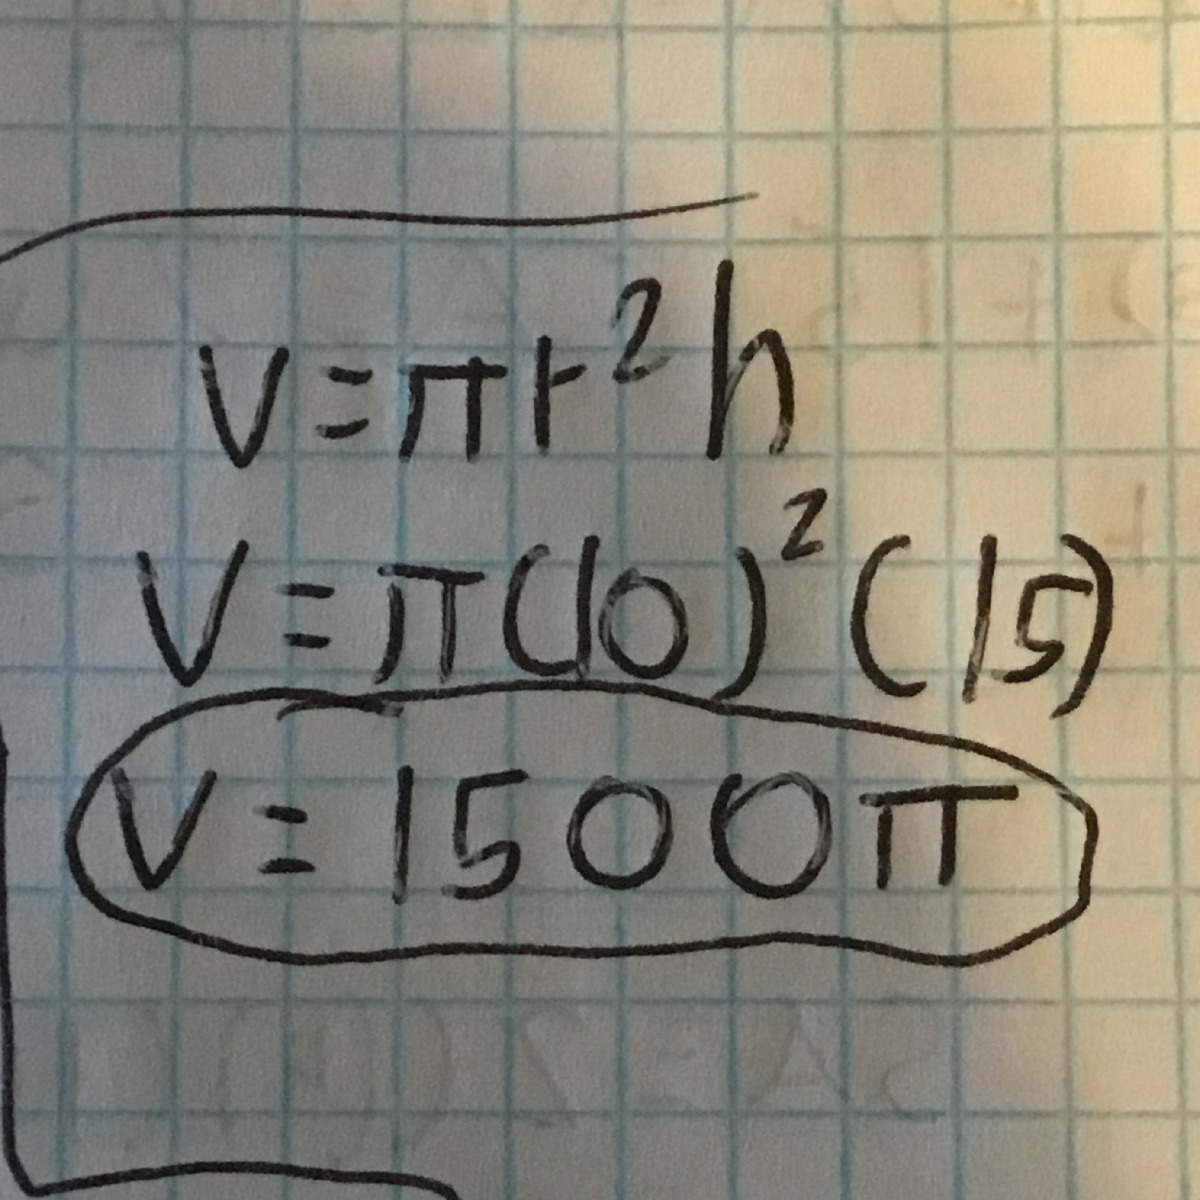 V=πr²h
V=π(10)²(15)
V=1500π